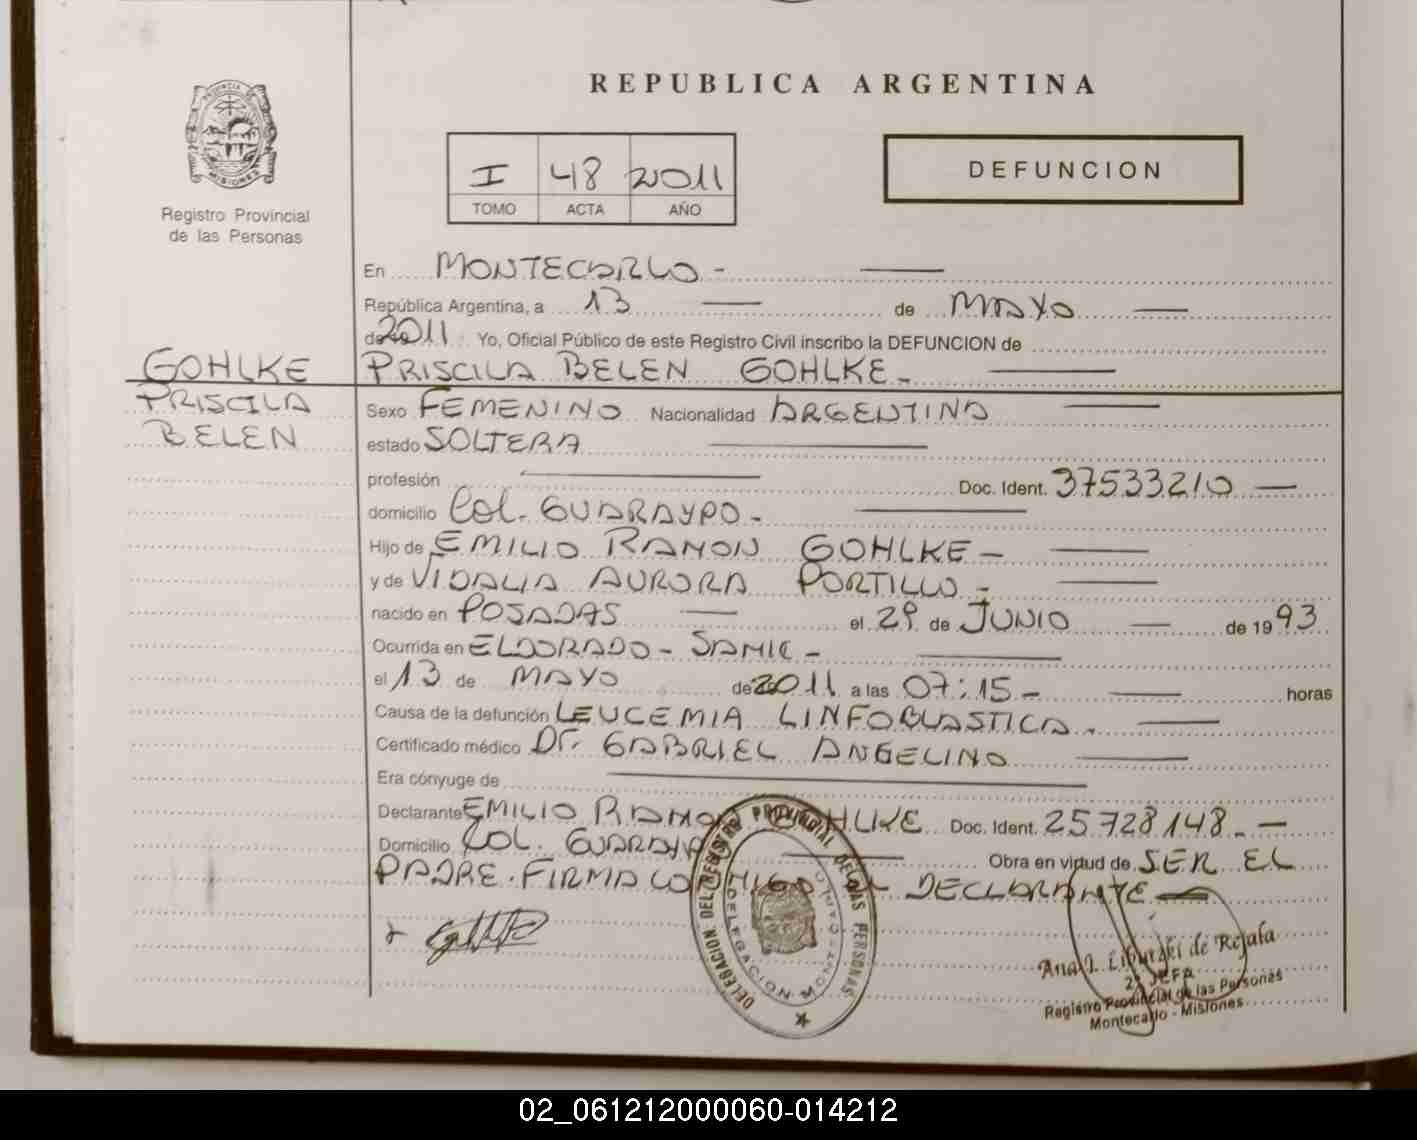 REPUBLICA ARGENTINA
PROVINCIA DE MISIONES
Registro Provincial
de las Personas
I 48 2011
TOMO ACTA AÑO
DEFUNCION
En MONTECARLO -
República Argentina, a 13 de MAYO
de 2011 Yo, Oficial Público de este Registro Civil inscribo la DEFUNCION de
GOHLKE PRISCILA BELEN GOHLKE -
PRISCILA Sexo FEMENINO Nacionalidad ARGENTINA
BELEN estado SOLTERA
profesión Doc. Ident. 37533210
domicilio Col. GUARAYPO -
Hijo de EMILIO RAMON GOHLKE -
y de VIDALIA AURORA PORTILLO -
nacido en POSADAS el 29 de JUNIO de 1993
Ocurrida en ELDORADO - SAMIC -
el 13 de MAYO de 2011 a las 07:15 - horas
Causa de la defunción LEUCEMIA LINFOBLASTICA -
Certificado médico Dr. GABRIEL ANGELINO
Era cónyuge de
Declarante EMILIO RAMON GOHLKE Doc. Ident. 25728148 -
Domicilio COL. GUARAYPO Obra en virtud de SER EL
PADRE. FIRMA CONMIGO EL DECLARANTE
DELEGACION DEL REGISTRO PROVINCIAL DE LAS PERSONAS
DELEGACION MONTECARLO
Ana L. de Rejala
2º JEFA
Registro Provincial de las Personas
Montecarlo - Misiones
02_061212000060-014212